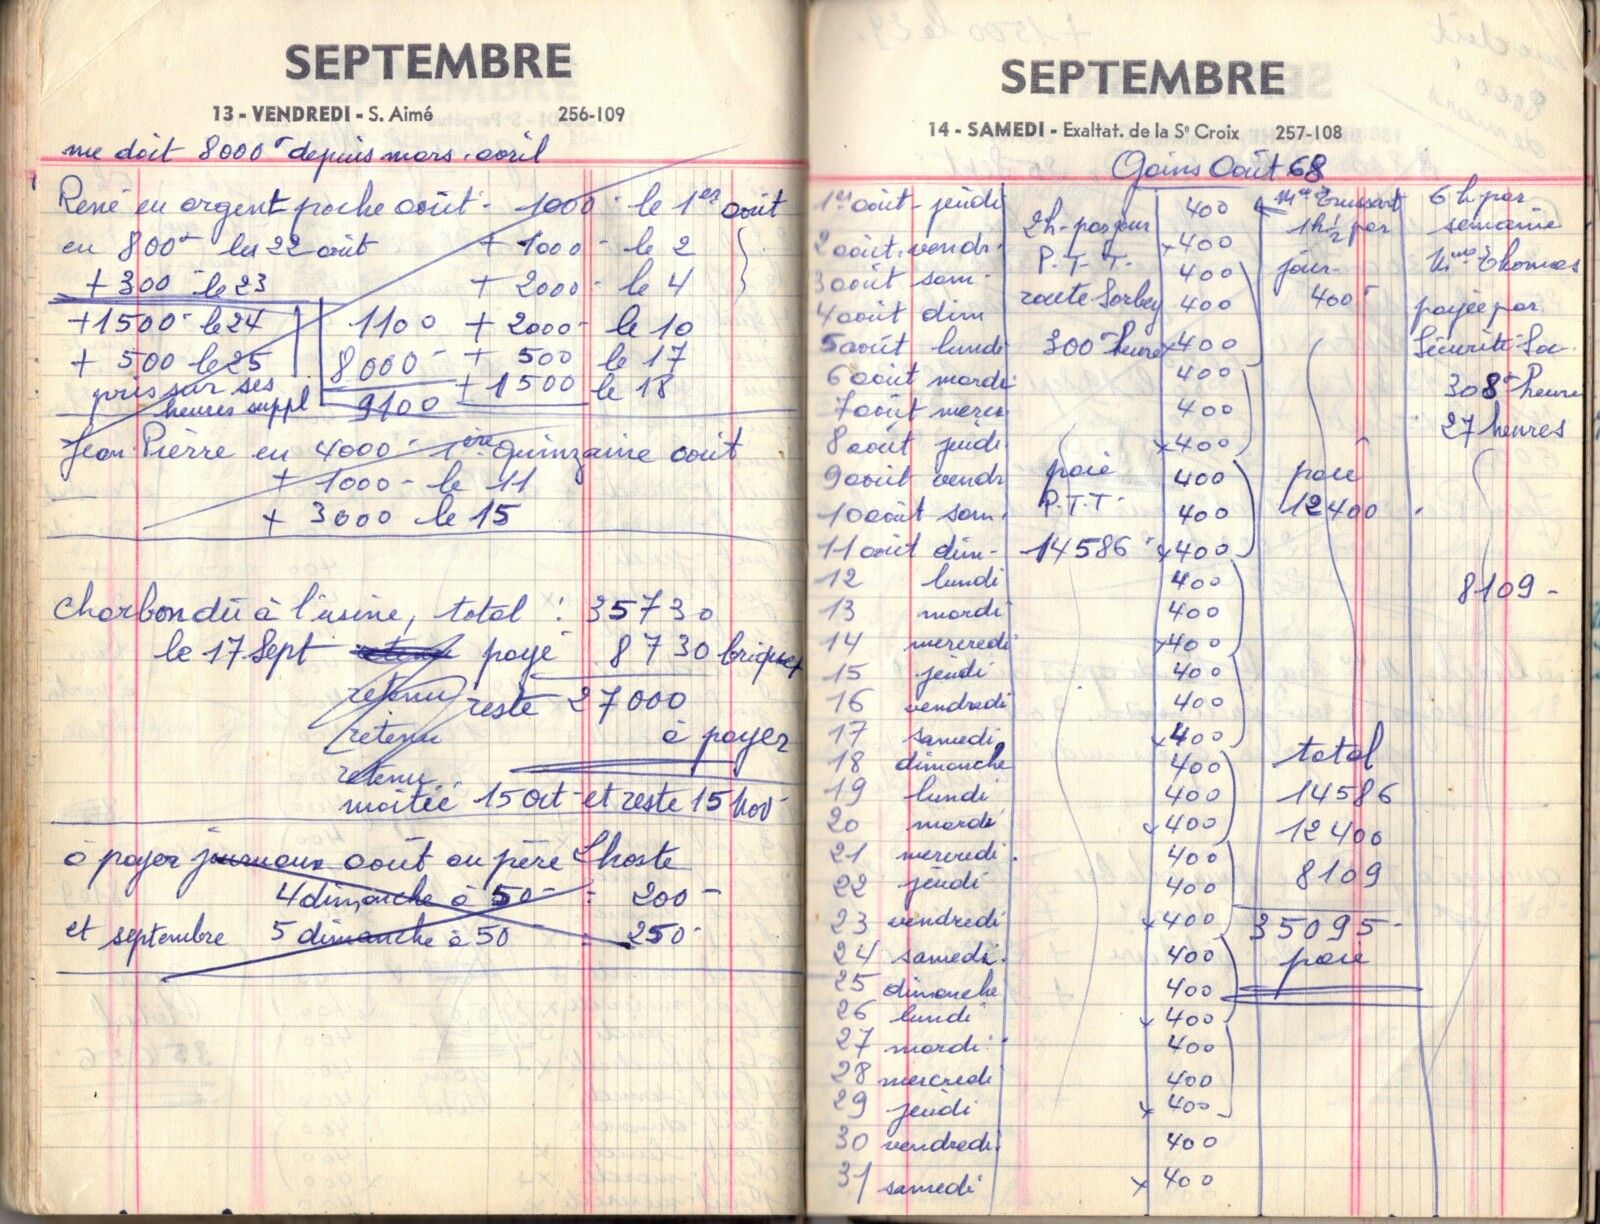 SEPTEMBRE
13 - VENDREDI - S. Aimé 256-109
me doit 8000 depuis mars. avril
René en argent poche août - 1000 - le 1er août
en 800 - les 22 août + 1000 - le 2
+ 300 - le 23 + 2000 - le 4
+ 1500 - le 24 1100 + 2000 - le 10
+ 500 le 25 8000 - + 500 le 17
pris sur ses 9100 + 1500 le 18
heures suppl
Jean-Pierre eu 4000 - 1ère quinzaine août
+ 1000 - le 11
+ 3000 le 15
charbon dû à l'usine, total : 35730
le 17 Sept payé 8730 briquet
retenu reste 27000
retenu à payer
retenu
moitié 15 Oct - et reste 15 Nov -
à payer journaux août au père Lhoste
4 dimanche à 50 - = 200 -
et septembre 5 dimanche à 50 = 250 -
SEPTEMBRE
14 - SAMEDI - Exaltat. de la Se Croix 257-108
Gains Août 68
1er août - jeudi 400
2 août - vendr - x 400
3 août sam - 400
4 août dim 400
5 août lundi x 400
6 août mardi 400
7 août mercr 400
8 août jeudi x 400
9 août vendr 400
10 août sam. 400
11 août dim - x 400
12 lundi 400
13 mardi 400
14 mercredi x 400
15 jeudi 400
16 vendredi 400
17 samedi x 400
18 dimanche 400
19 lundi 400
20 mardi x 400
21 mercredi 400
22 jeudi 400
23 vendredi x 400
24 samedi 400
25 dimanche 400
26 lundi x 400
27 mardi 400
28 mercredi 400
29 jeudi x 400
30 vendredi 400
31 samedi x 400
2h - par jour
P.T.T.
route Sorbey
300 heure
paie
P.T.T.
14586
Mme
1h 1/2 par
jour
400
paie
12400
total
14586
12400
8109
35095 -
paie
6 h par
semaine
Mme Thomas
payée par
Sécurité Soc.
308 heure
27 heures
8109 -